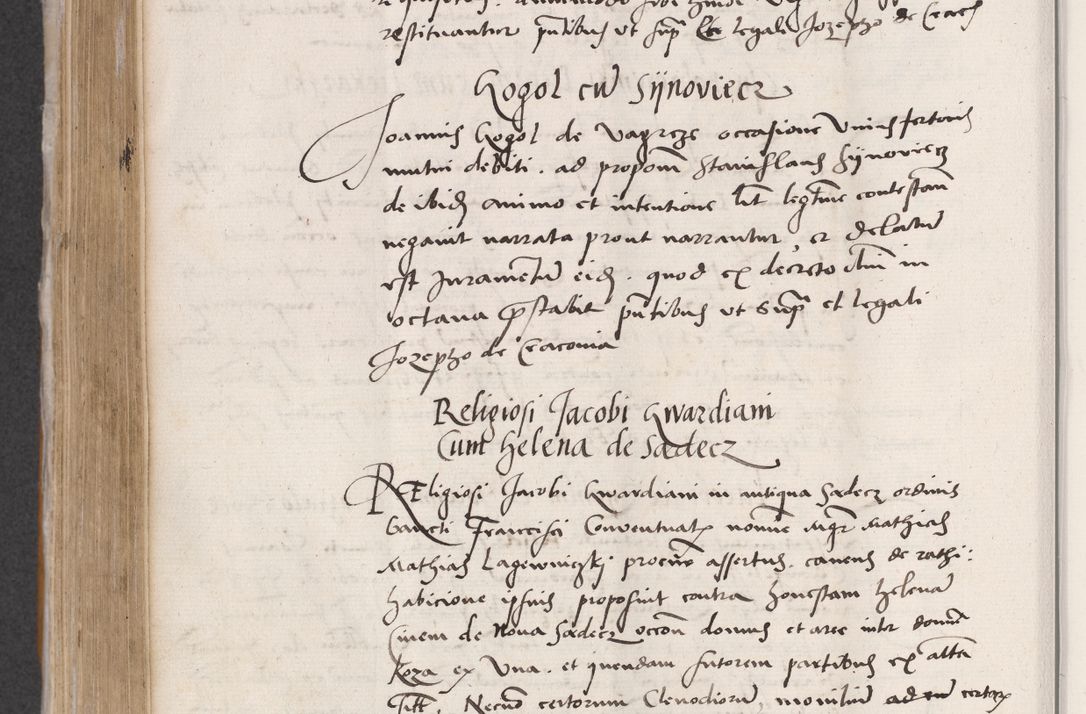 restituantur pntibus ut supra et legali Jozepho de Cracov
Gogol cum Sijnoviecz
Joannis Gogol de Vagrcze occasione unius fertonis
mutui debiti. ad proponm Stanislaus Sijnoviecz
de ibidem animo et intentione lit legitme contestan
negavit narrata prout narrantur, et delatum
est Juramentu eidem. quod ex decreto dni in
octava prestabit pntibus ut supra et legali
Jozepho de Cracovia
Religiosi Jacobi Gwardiani
Cum Helena de Sadecz
Religiosi Jacobi Gwardiani in antiqua Sadecz ordinis
Sancti Francisci Conventual nomine Mgr Mathias
Mathias Lagewniczkj procure assertus. cavens de rathi:
habicione ipsius proposuit contra honestam Helenam
Civem de Nova Sadecz occon domus et aree inter domum
Koza ex Una. et quendam sutorem partibus ex altera
Sitt, Necno certorum Clenodioru, monilium